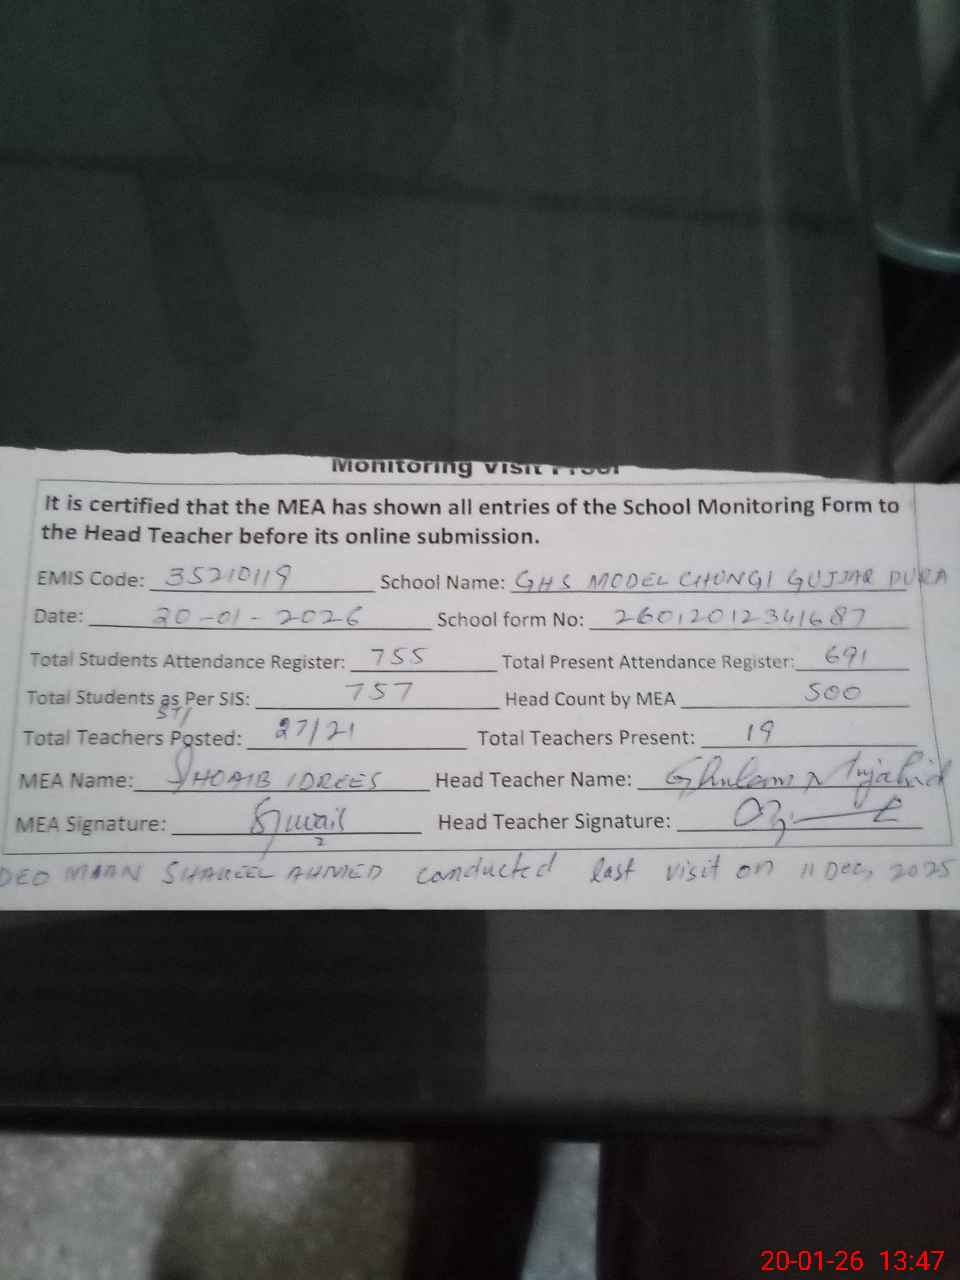 Monitoring Visit Proof
It is certified that the MEA has shown all entries of the School Monitoring Form to
the Head Teacher before its online submission.
EMIS Code: 35210119 School Name: GHS MODEL CHUNGI GUJJAR PURA
Date: 20-01-2026 School form No: 26012012341687
Total Students Attendance Register: 755 Total Present Attendance Register: 691
Total Students as Per SIS: 757 Head Count by MEA 500
ST/
Total Teachers Posted: 27/21 Total Teachers Present: 19
MEA Name: SHOAIB IDREES Head Teacher Name: Ghulam Mujahid
MEA Signature: Head Teacher Signature:
DEO MIAN SHAKEEL AHMED conducted last visit on 11 Dec, 2025
20-01-26 13:47